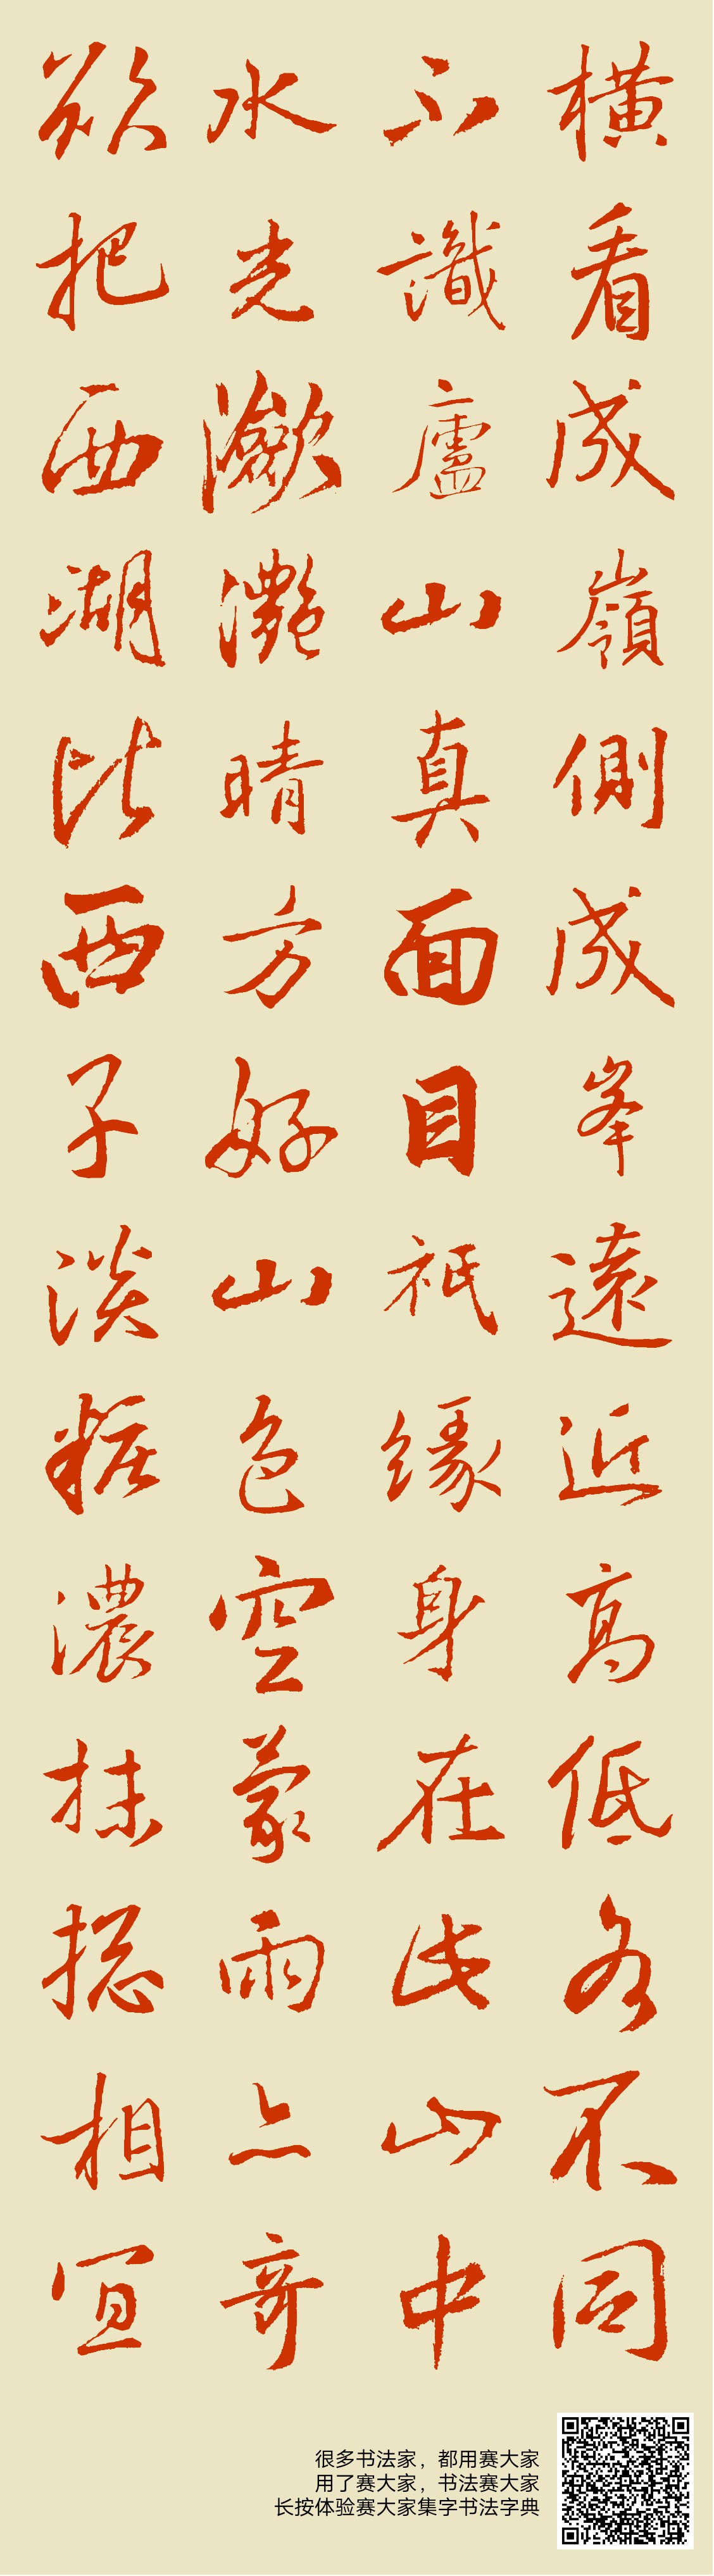 橫看成嶺側成峯遠近高低各不同
不識廬山真面目祇緣身在此山中
水光瀲灩晴方好山色空蒙雨亦奇
欲把西湖比西子淡粧濃抹揔相宜
很多书法家，都用赛大家
用了赛大家，书法赛大家
长按体验赛大家集字书法字典